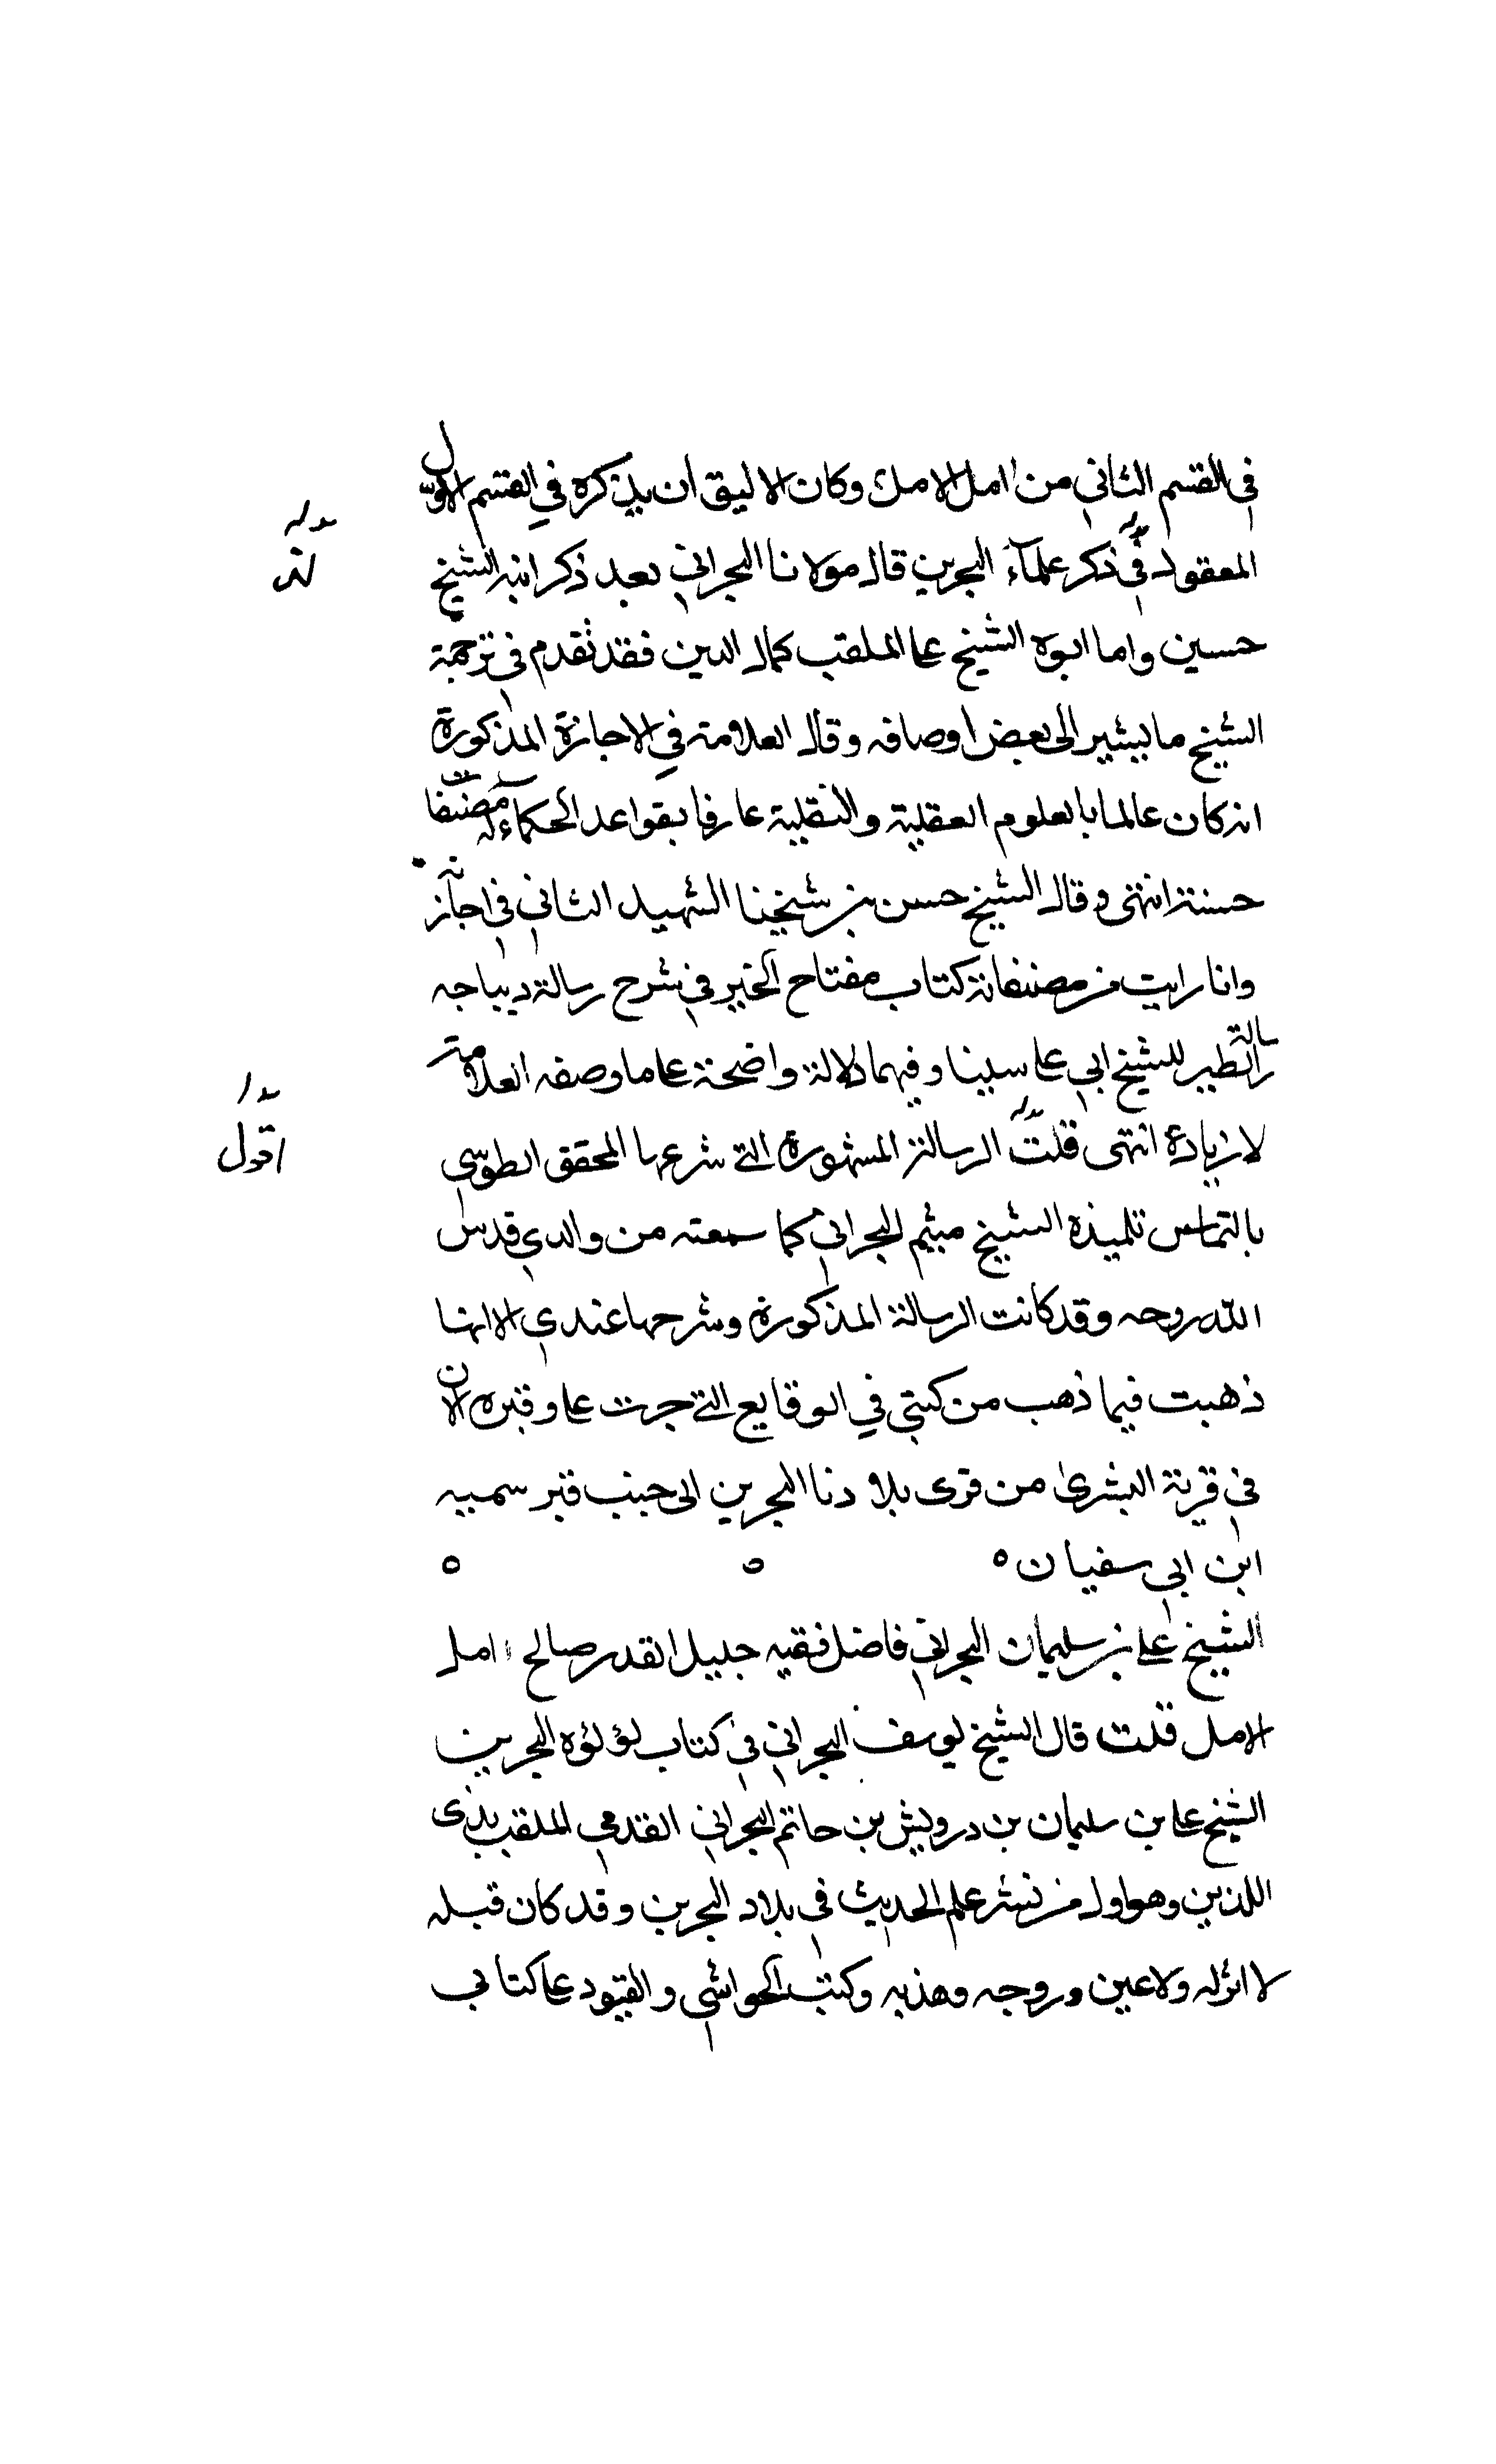 في القسم الثاني من امل الامل وكان الاليق ان يذكره في القسم الاول
المعقود في ذكر علمآء البحرين قال مولانا البحراني بعد ذكر ابنه الشيخ
حسين واما ابوه الشيخ على الملقب كمال الدين فقد تقدم في ترجمة
الشيخ ما يشير الى بعض اوصافه وقال العلامة في الاجازة المذكورة
انه كان عالما بالعلوم العقلية والنقلية عارفا بقواعد الحكماء له مصنفات
حسنة انتهى وقال الشيخ حسن بن شيخنا الشهيد الثاني في اجازته
وانا رايت من مصنفاته كتاب مفتاح الخير في شرح رسالة ديباجه
رسالة الطير للشيخ ابي على سينا وفيهما دلالة واضحة على ما وصفه العلامة
لا زيادة انتهى قلت الرسالة المشهورة التي شرعها المحقق الطوسي
بالتماس تلميذه الشيخ ميثم البحراني كما سمعته من والدي قدس
الله روحه وقد كانت الرسالة المذكورة وشرحها عندي الا انها
ذهبت فيما ذهب من كتبي في الوقايع التي جرت على وقبره الان
في قرية البشرى من قرى بلادنا البحرين الى جنب قبر سميه
ابن ابي سفيان ٥ ٥ ٥
الشيخ على بن سليمان البحراني فاضل فقيه جليل القدر صالح امل
الامل قلت قال الشيخ يوسف البحراني في كتاب لؤلؤه البحرين
الشيخ على بن سليمان بن درويش بن حاتم البحراني القدمي الملقب بذى
اللدين وهو اول من نشر علم الحديث في بلاد البحرين وقد كان قبله
لا اثر له ولا عين وروجه وهذبه وكتب الحواشي والقيود على كتابي
بدل
اقول